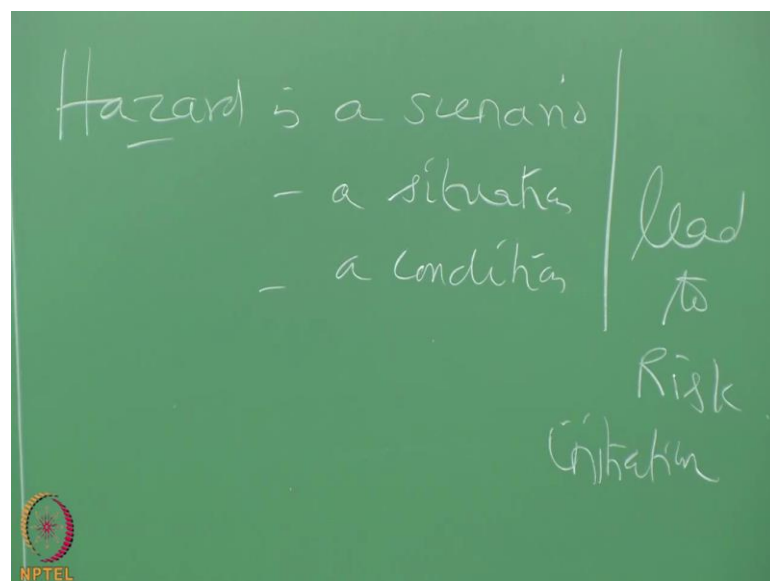 Hazard is a scenario
- a situation
- a condition
lead
to
Risk
initiation
NPTEL